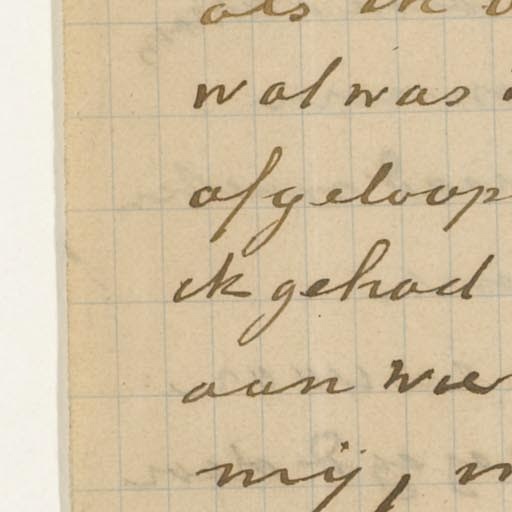 als ik
wat was
afgeloop
ik gehad
aan wie
mij,